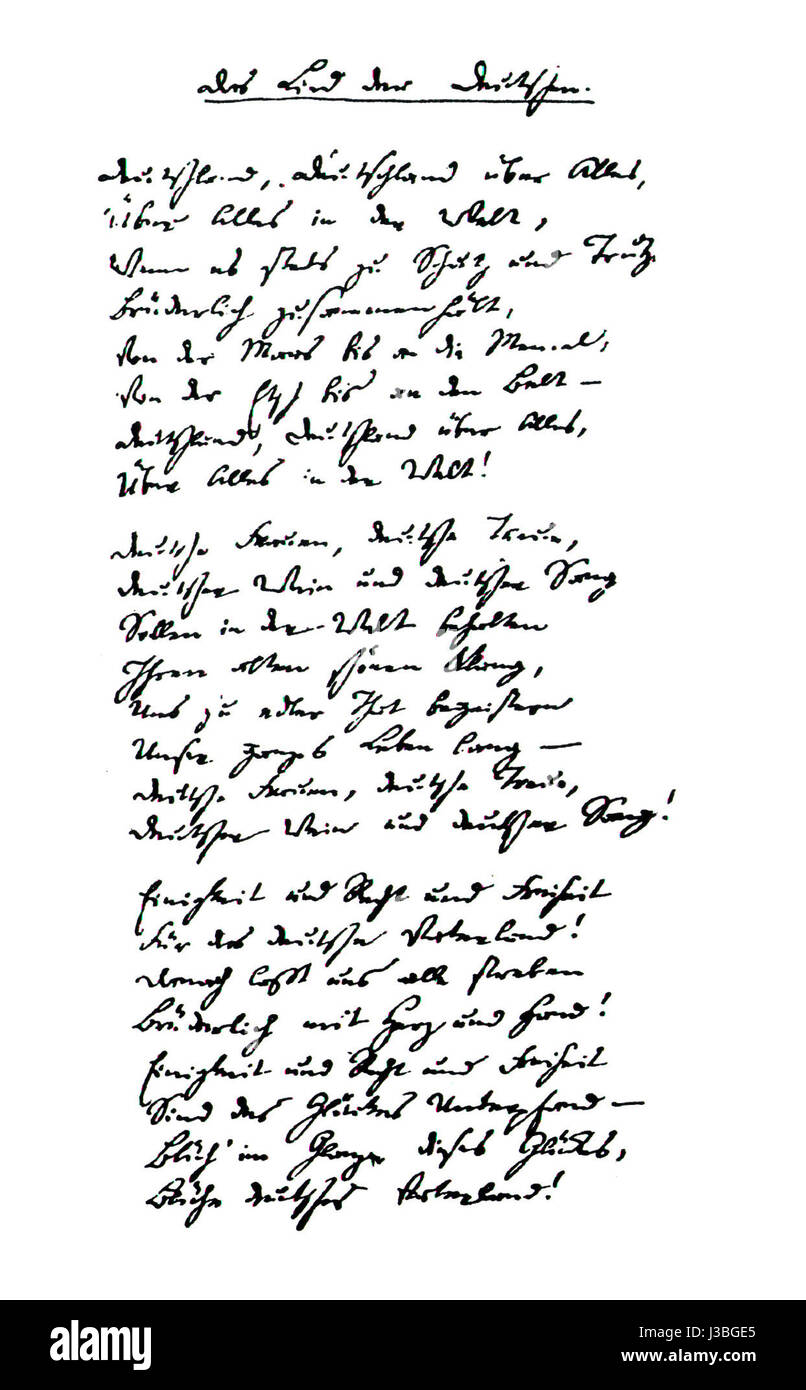 Das Lied der Deutschen.
Deutschland, Deutschland über Alles,
Über Alles in der Welt,
Wenn es stets zu Schutz und Trutz
Brüderlich zusammenhält,
Von der Maas bis an die Memel,
Von der Etsch bis an den Belt –
Deutschland, Deutschland über Alles,
Über Alles in der Welt!
Deutsche Frauen, deutsche Treue,
Deutscher Wein und deutscher Sang
Sollen in der Welt behalten
Ihren alten schönen Klang,
Uns zu edler That begeistern
Unser ganzes Leben lang –
Deutsche Frauen, deutsche Treue,
Deutscher Wein und deutscher Sang!
Einigkeit und Recht und Freiheit
Für das deutsche Vaterland!
Danach lasst uns alle streben
Brüderlich mit Herz und Hand!
Einigkeit und Recht und Freiheit
Sind des Glückes Unterpfand –
Blüh' im Glanze dieses Glückes,
Blühe deutsches Vaterland!
alamy stock photo
alamy
Image ID: J3BGE5
www.alamy.com